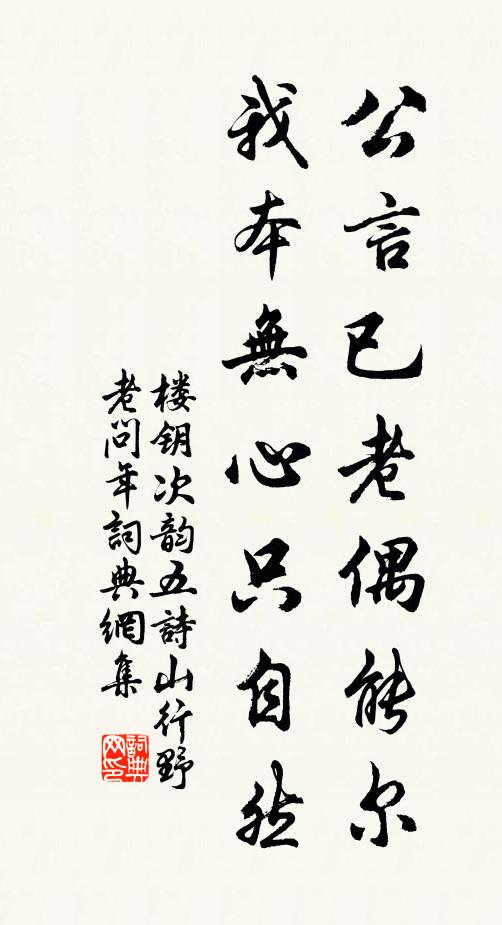 公言已老偶能尔
我本無心只自然
楼钥次韵五詩山行野
老问年詞典網集
詞典网印